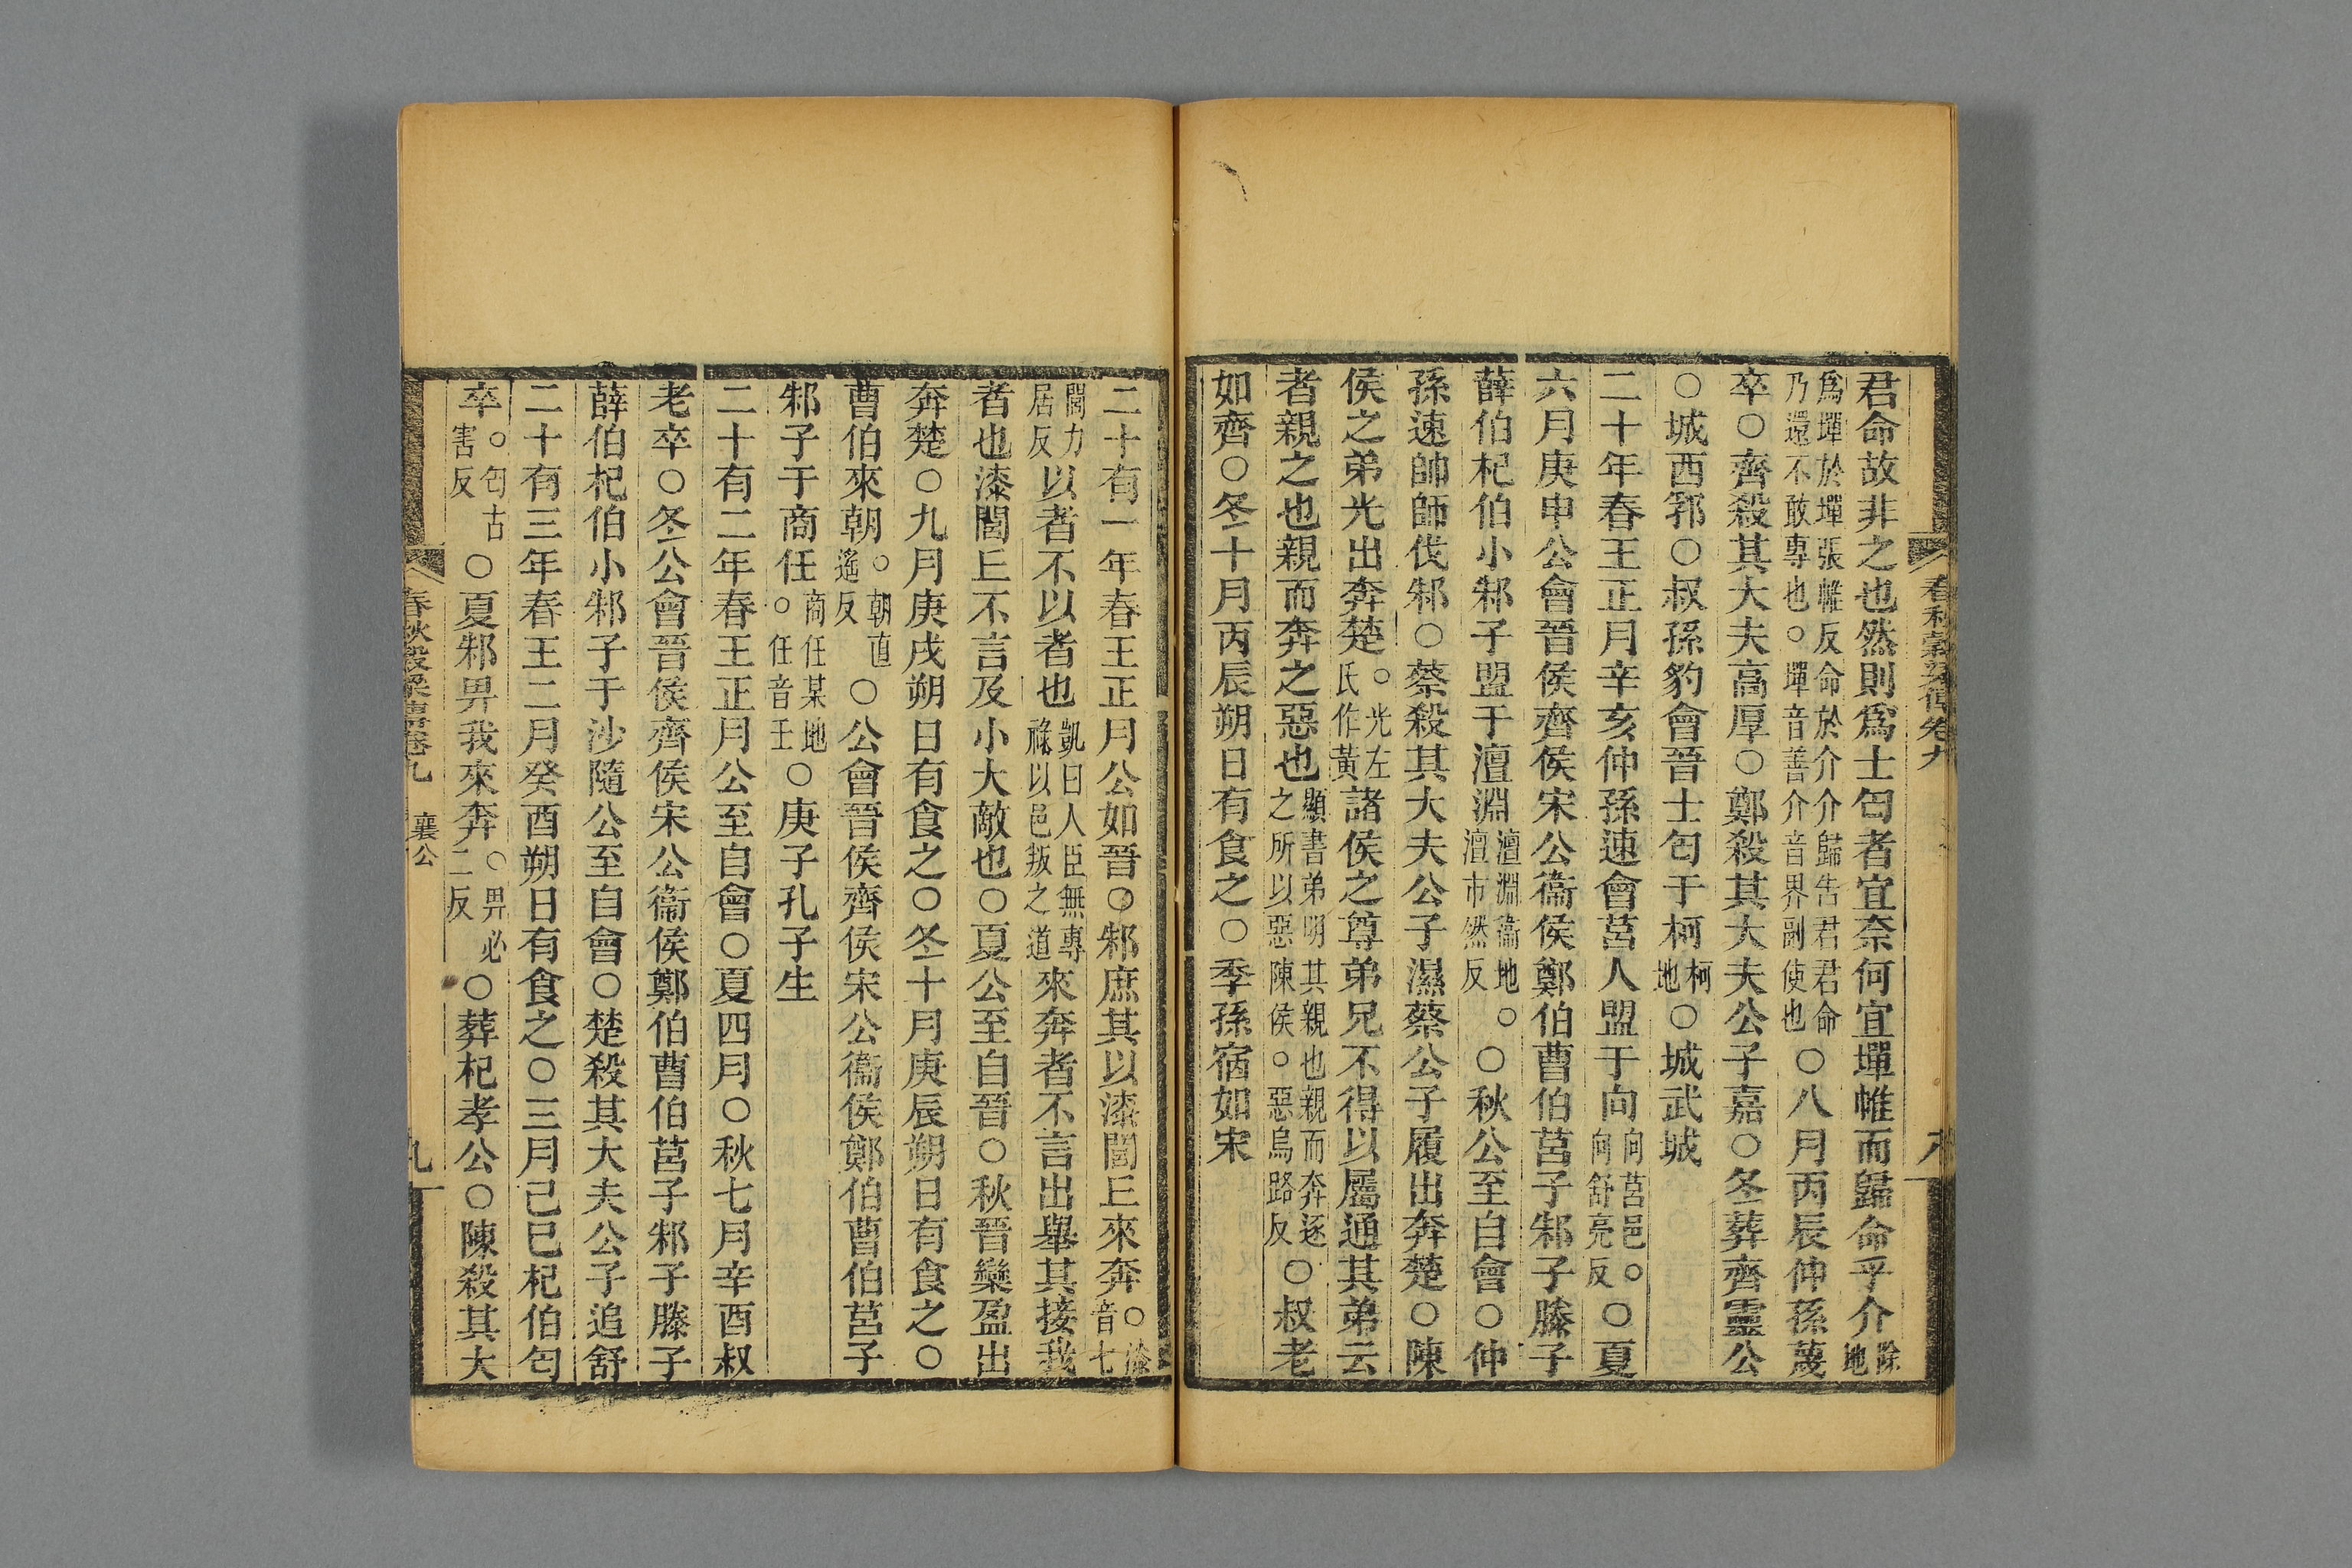 君命故非之也然則爲士匄者宜奈何宜墠帷而歸命乎介除地
爲墠於墠張帷反命於介介歸告君君命乃還不敢專也○墠音善介音界副使也○八月丙辰仲孫蔑
卒○齊殺其大夫高厚○鄭殺其大夫公子嘉○冬葬齊靈公
○城西郛○叔孫豹會晉士匄于柯柯地○城武城
二十年春王正月辛亥仲孫速會莒人盟于向向莒邑○向舒亮反○夏
六月庚申公會晉侯齊侯宋公衞侯鄭伯曹伯莒子邾子滕子
薛伯杞伯小邾子盟于澶淵澶淵衞地○澶市然反○秋公至自會○仲
孫速帥師伐邾○蔡殺其大夫公子濕蔡公子履出奔楚○陳
侯之弟光出奔楚○光左氏作黃諸侯之尊弟兄不得以屬通其弟云
者親之也親而奔之惡也顯書弟明其親也親而奔逐之所以惡陳侯○惡烏路反○叔老
如齊○冬十月丙辰朔日有食之○季孫宿如宋
春秋穀梁傳卷九
八
二十有一年春王正月公如晉○邾庶其以漆閭丘來奔○漆音七
閭力居反以者不以者也凱曰人臣無專祿以邑叛之道來奔者不言出舉其接我
者也漆閭丘不言及小大敵也○夏公至自晉○秋晉欒盈出
奔楚○九月庚戌朔日有食之○冬十月庚辰朔日有食之○
曹伯來朝○朝直遙反○公會晉侯齊侯宋公衞侯鄭伯曹伯莒子
邾子于商任商任某地○任音壬○庚子孔子生
二十有二年春王正月公至自會○夏四月○秋七月辛酉叔
老卒○冬公會晉侯齊侯宋公衞侯鄭伯曹伯莒子邾子滕子
薛伯杞伯小邾子于沙隨公至自會○楚殺其大夫公子追舒
二十有三年春王二月癸酉朔日有食之○三月己巳杞伯匄
卒○匄古害反○夏邾畀我來奔○畀必二反○葬杞孝公○陳殺其大
春秋穀梁傳卷九 襄公
九